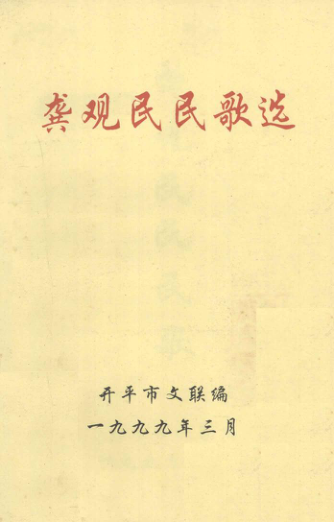 龚观民民歌选
开平市文联编
一九九九年三月